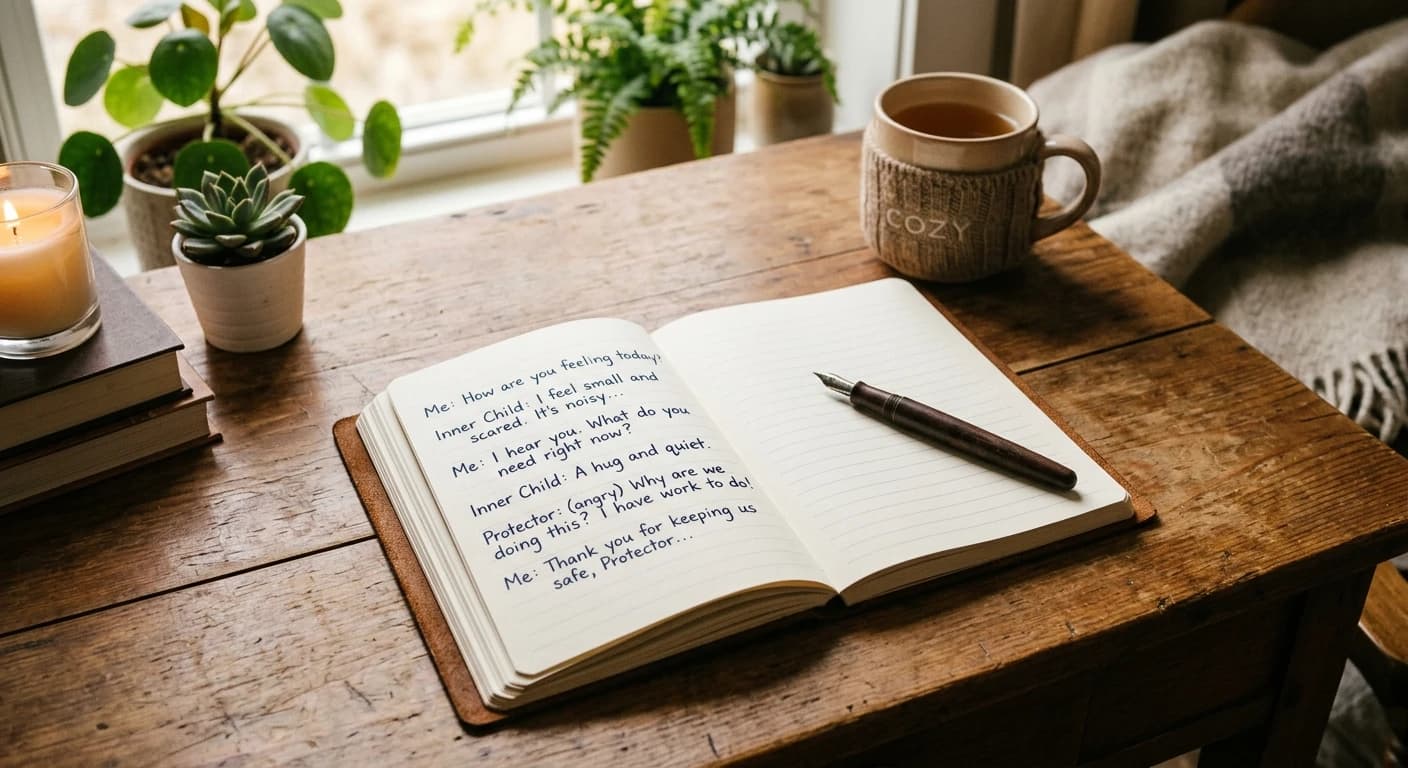 COZY
Me: How are you feeling today?
Inner Child: I feel small and
scared. It's noisy...
Me: I hear you. What do you
need right now?
Inner Child: A hug and quiet.
Protector: (angry) Why are we
doing this? I have work to do!
Me: Thank you for keeping us
safe, Protector...